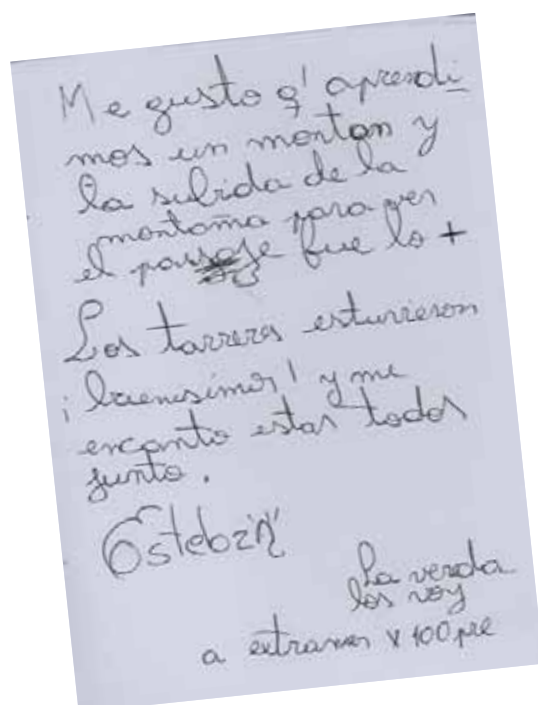 Me gusto q' aprendi
mos un monton y
la subida de la
montaña para ver
el paisaje fue lo +
Los tarreres estuvieron
¡buenisimos! y me
encanto estar todos
junto.
Esteban
La verda
los voy
a extrañar x 100pre